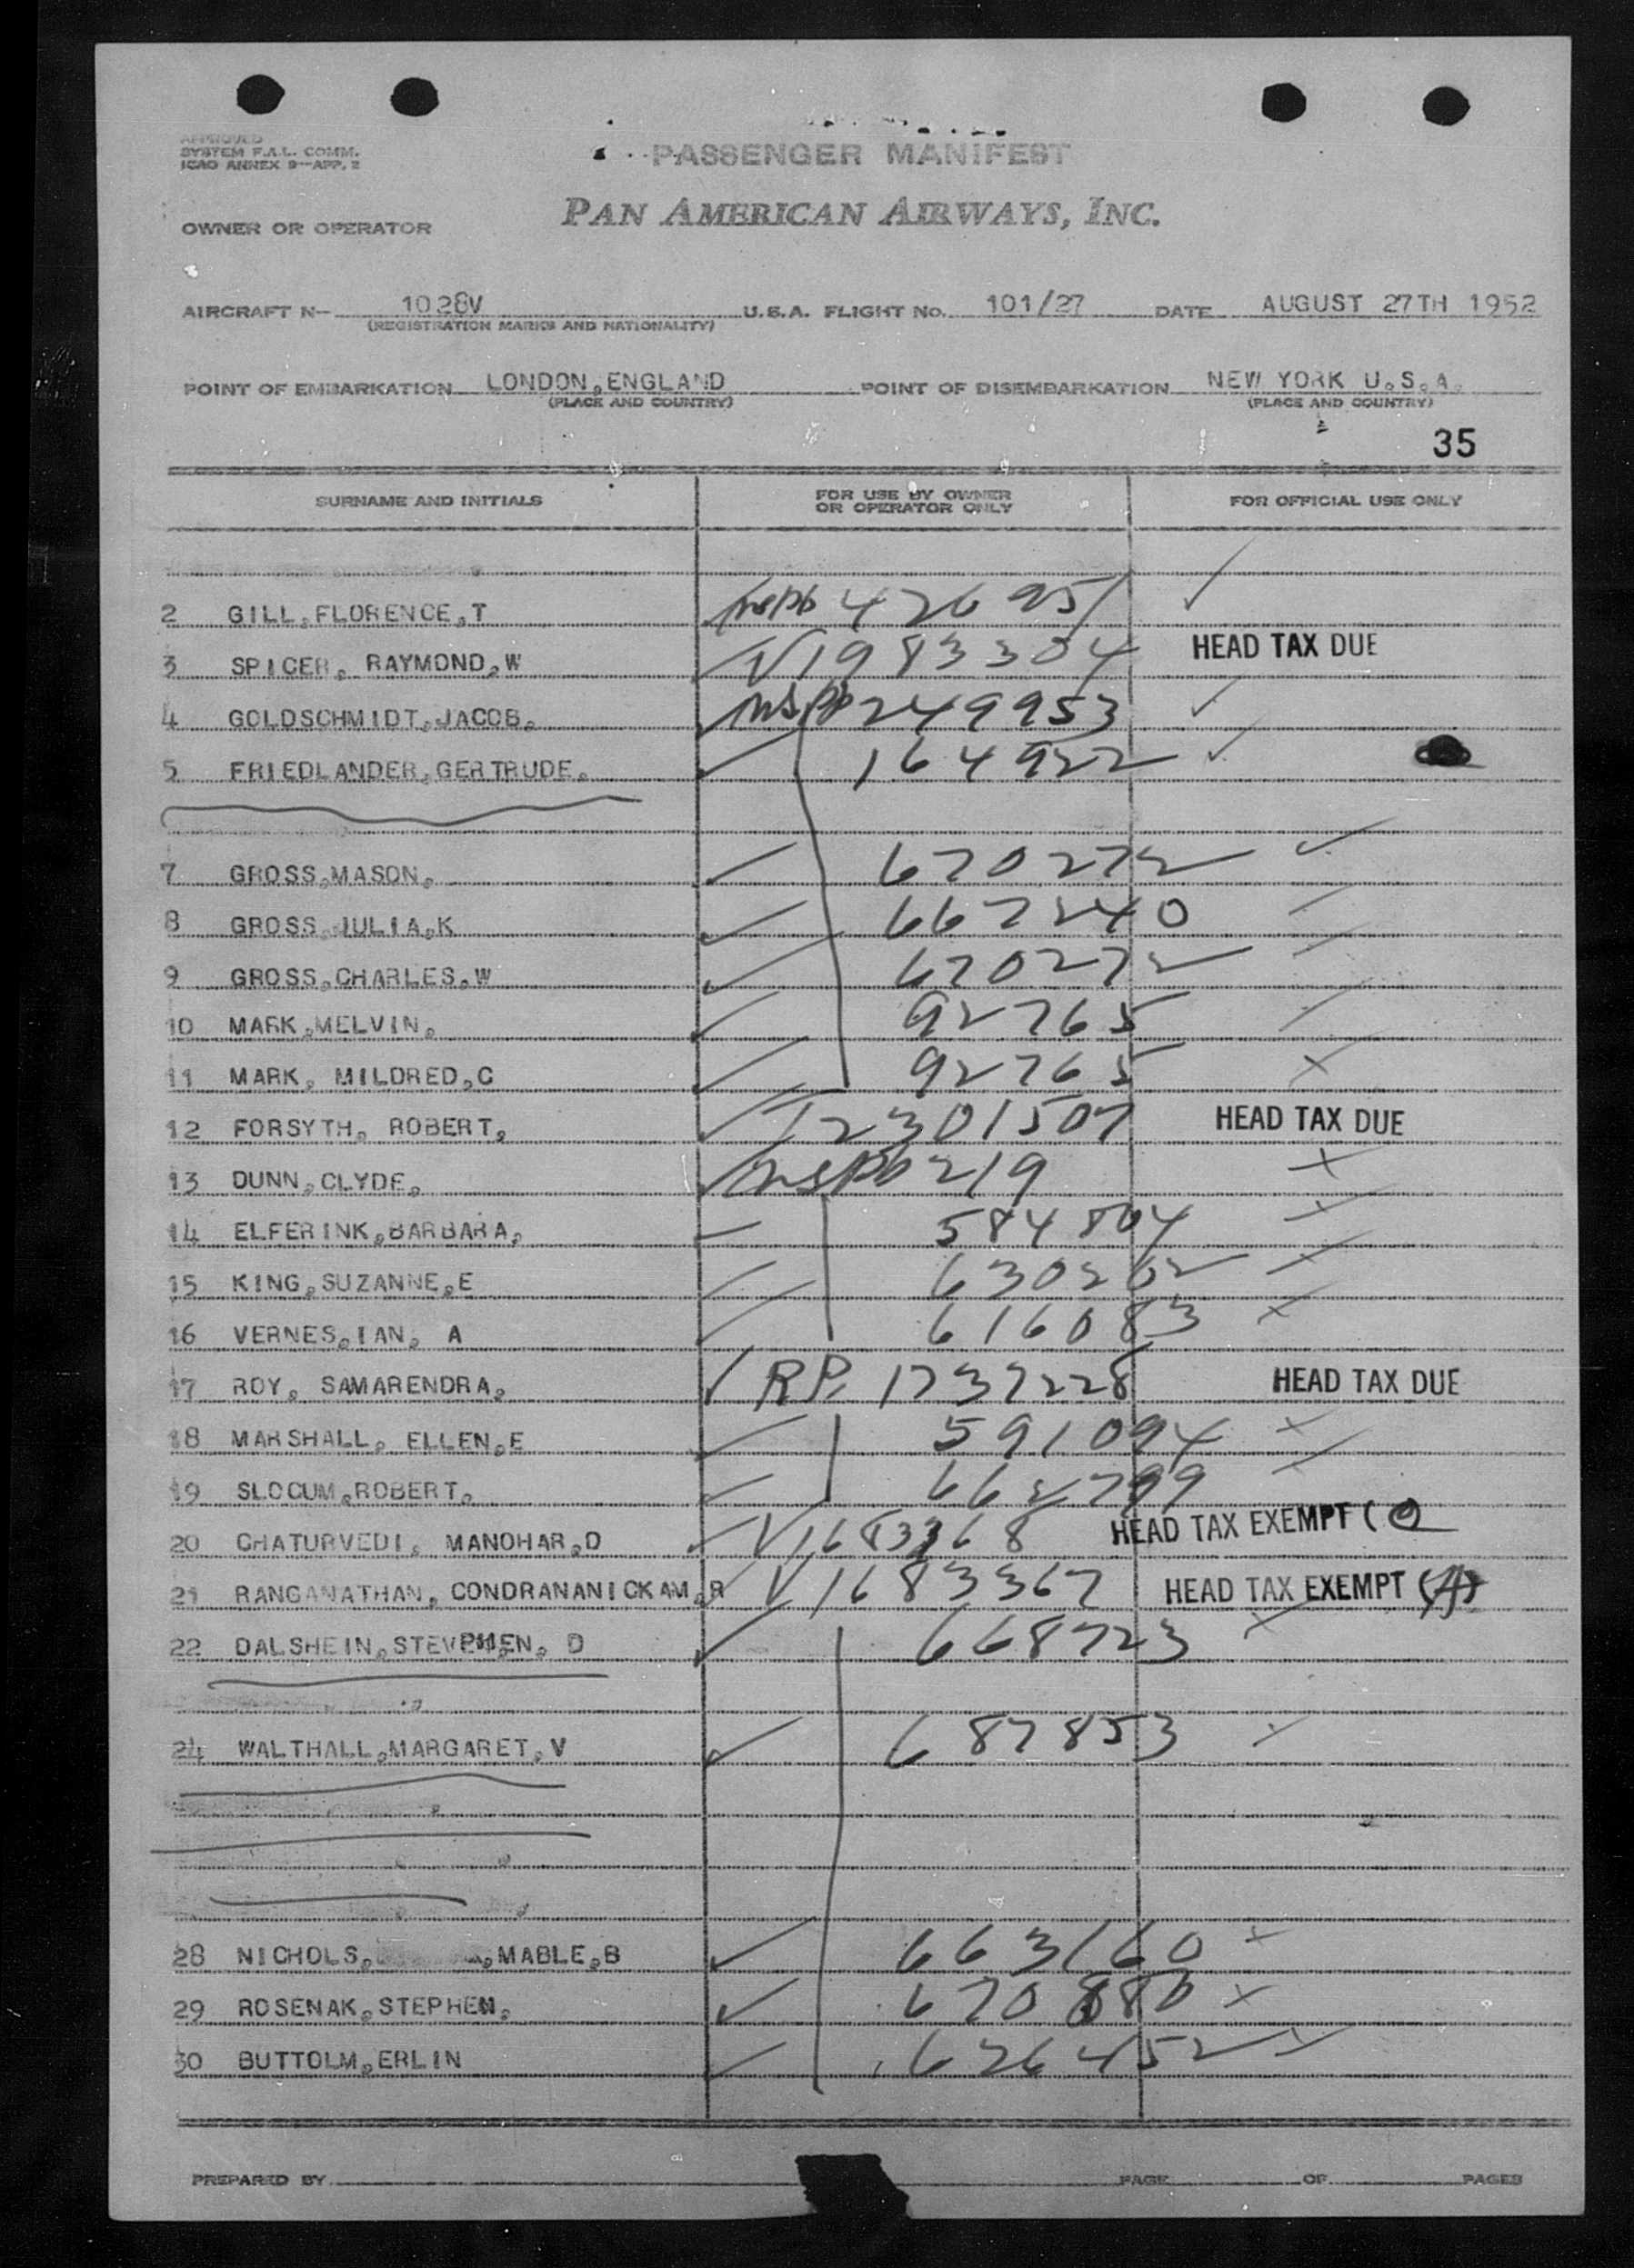 APPROVED
SYSTEM F.A.L. COMM.
ICAO ANNEX 9—APP. 2
PASSENGER MANIFEST
OWNER OR OPERATOR PAN AMERICAN AIRWAYS, INC.
AIRCRAFT N— 1028V U.S.A. FLIGHT NO. 101/27 DATE AUGUST 27TH 1952
(REGISTRATION MARKS AND NATIONALITY)
POINT OF EMBARKATION LONDON, ENGLAND POINT OF DISEMBARKATION NEW YORK U.S.A.
(PLACE AND COUNTRY) (PLACE AND COUNTRY)
35
SURNAME AND INITIALS FOR USE BY OWNER OR OPERATOR ONLY FOR OFFICIAL USE ONLY
2 GILL, FLORENCE, T 426951 ✓
3 SPICER, RAYMOND, W V1983304 HEAD TAX DUE
4 GOLDSCHMIDT, JACOB, USPP 249953 ✓
5 FRIEDLANDER, GERTRUDE. 164922 ✓
7 GROSS, MASON, 670272 ✓
8 GROSS, JULIA, K 667240
9 GROSS, CHARLES, W 670272
10 MARK, MELVIN, 92765
11 MARK, MILDRED, C 92765
12 FORSYTH, ROBERT, T2301507 HEAD TAX DUE
13 DUNN, CLYDE, USPP 219
14 ELFERINK, BARBARA, 584804
15 KING, SUZANNE, E 630262
16 VERNES, IAN, A 616083
17 ROY, SAMARENDRA, RP. 1737228 HEAD TAX DUE
18 MARSHALL, ELLEN, E 591094
19 SLOCUM, ROBERT, 662799
20 CHATURVEDI, MANOHAR, D V1683368 HEAD TAX EXEMPT (
21 RANGANATHAN, CONDRANANICKAM, R V1683367 HEAD TAX EXEMPT (A)
22 DALSHEIN, STEVPHEN, D 668723
24 WALTHALL, MARGARET, V 687853
28 NICHOLS, MABLE, B 663160
29 ROSENAK, STEPHEN, 670880
30 BUTTOLM, ERLIN 626452
PREPARED BY PAGE OF PAGES